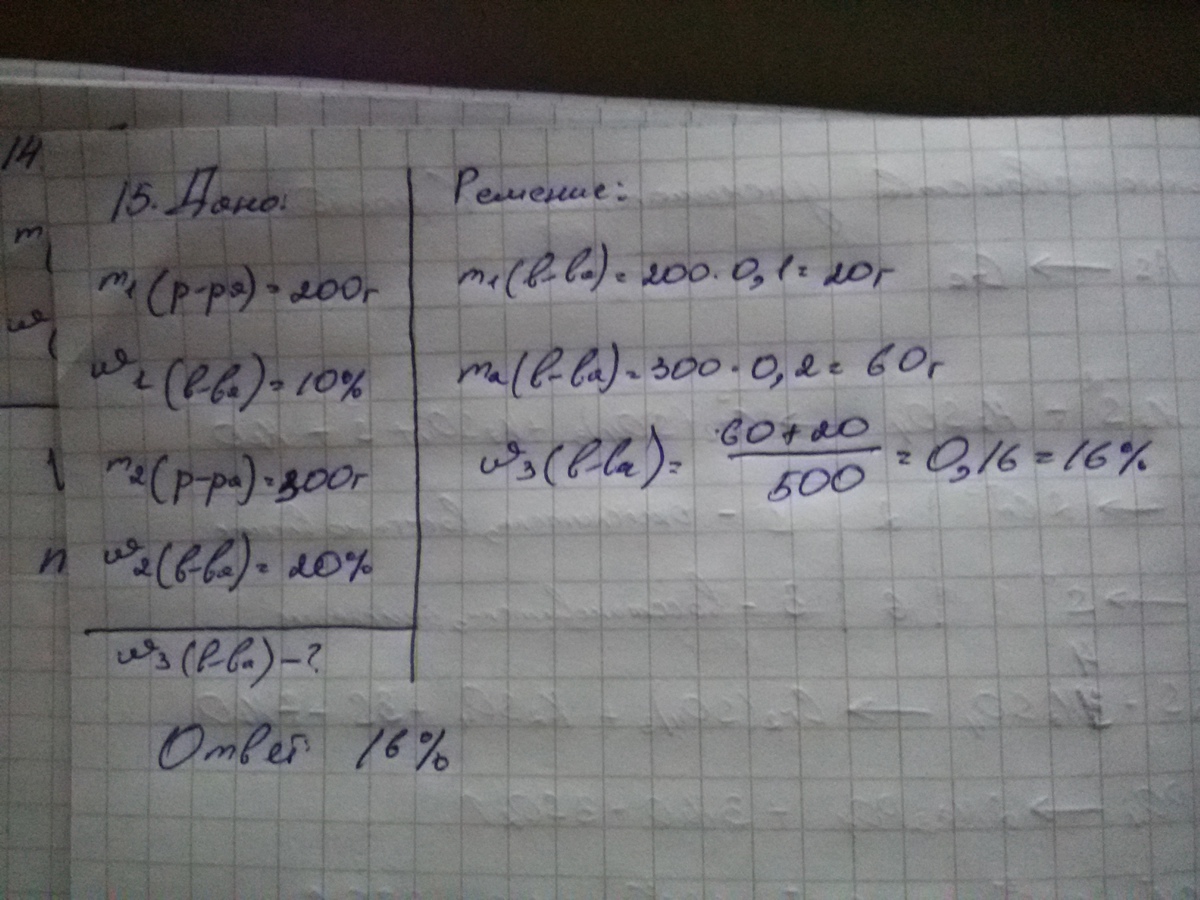 14
15. Дано:
m₁(р-ра) = 200г
w₁(в-ва) = 10%
m₂(р-ра) = 300г
w₂(в-ва) = 20%
w₃(в-ва) - ?
Решение:
m₁(в-ва) = 200 · 0,1 = 20г
m₂(в-ва) = 300 · 0,2 = 60г
w₃(в-ва) = 60+20 / 500 = 0,16 = 16%
Ответ: 16%